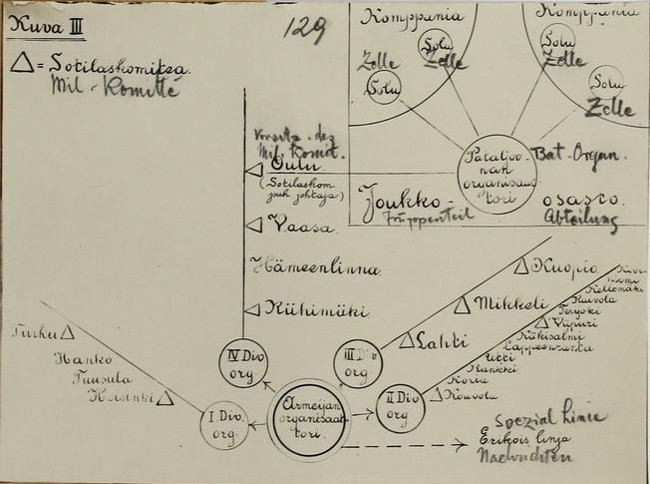 Kuva III
129
△ = Sotilaskomitea.
Mil-Komitte
Komppania
Komppania
Solu
Zelle
Zelle
Solu
Solu
Zelle
Solu
Zelle
Pataljoo-
nan
organisaat-
tori
Bat. Organ.
Joukko-
osasto.
Truppenteil
Abteilung
Vorsitz. des
Mil. Komit.
Oulu.
(Sotilaskom
johtaja)
Vaasa.
Hämeenlinna.
Riihimäki
Kuopio
Mikkeli
Lahti
Terijoki
Viipuri
Käkisalmi
Lappeenranta
Koria
Kouvola
Turku
Hanko
Tuusula
Helsinki
IV Div
org
III Div
org
II Div
org
I Div.
org
Armeijan
organisaat-
tori.
Spezial Linie
Erikois linja
Nachrichten